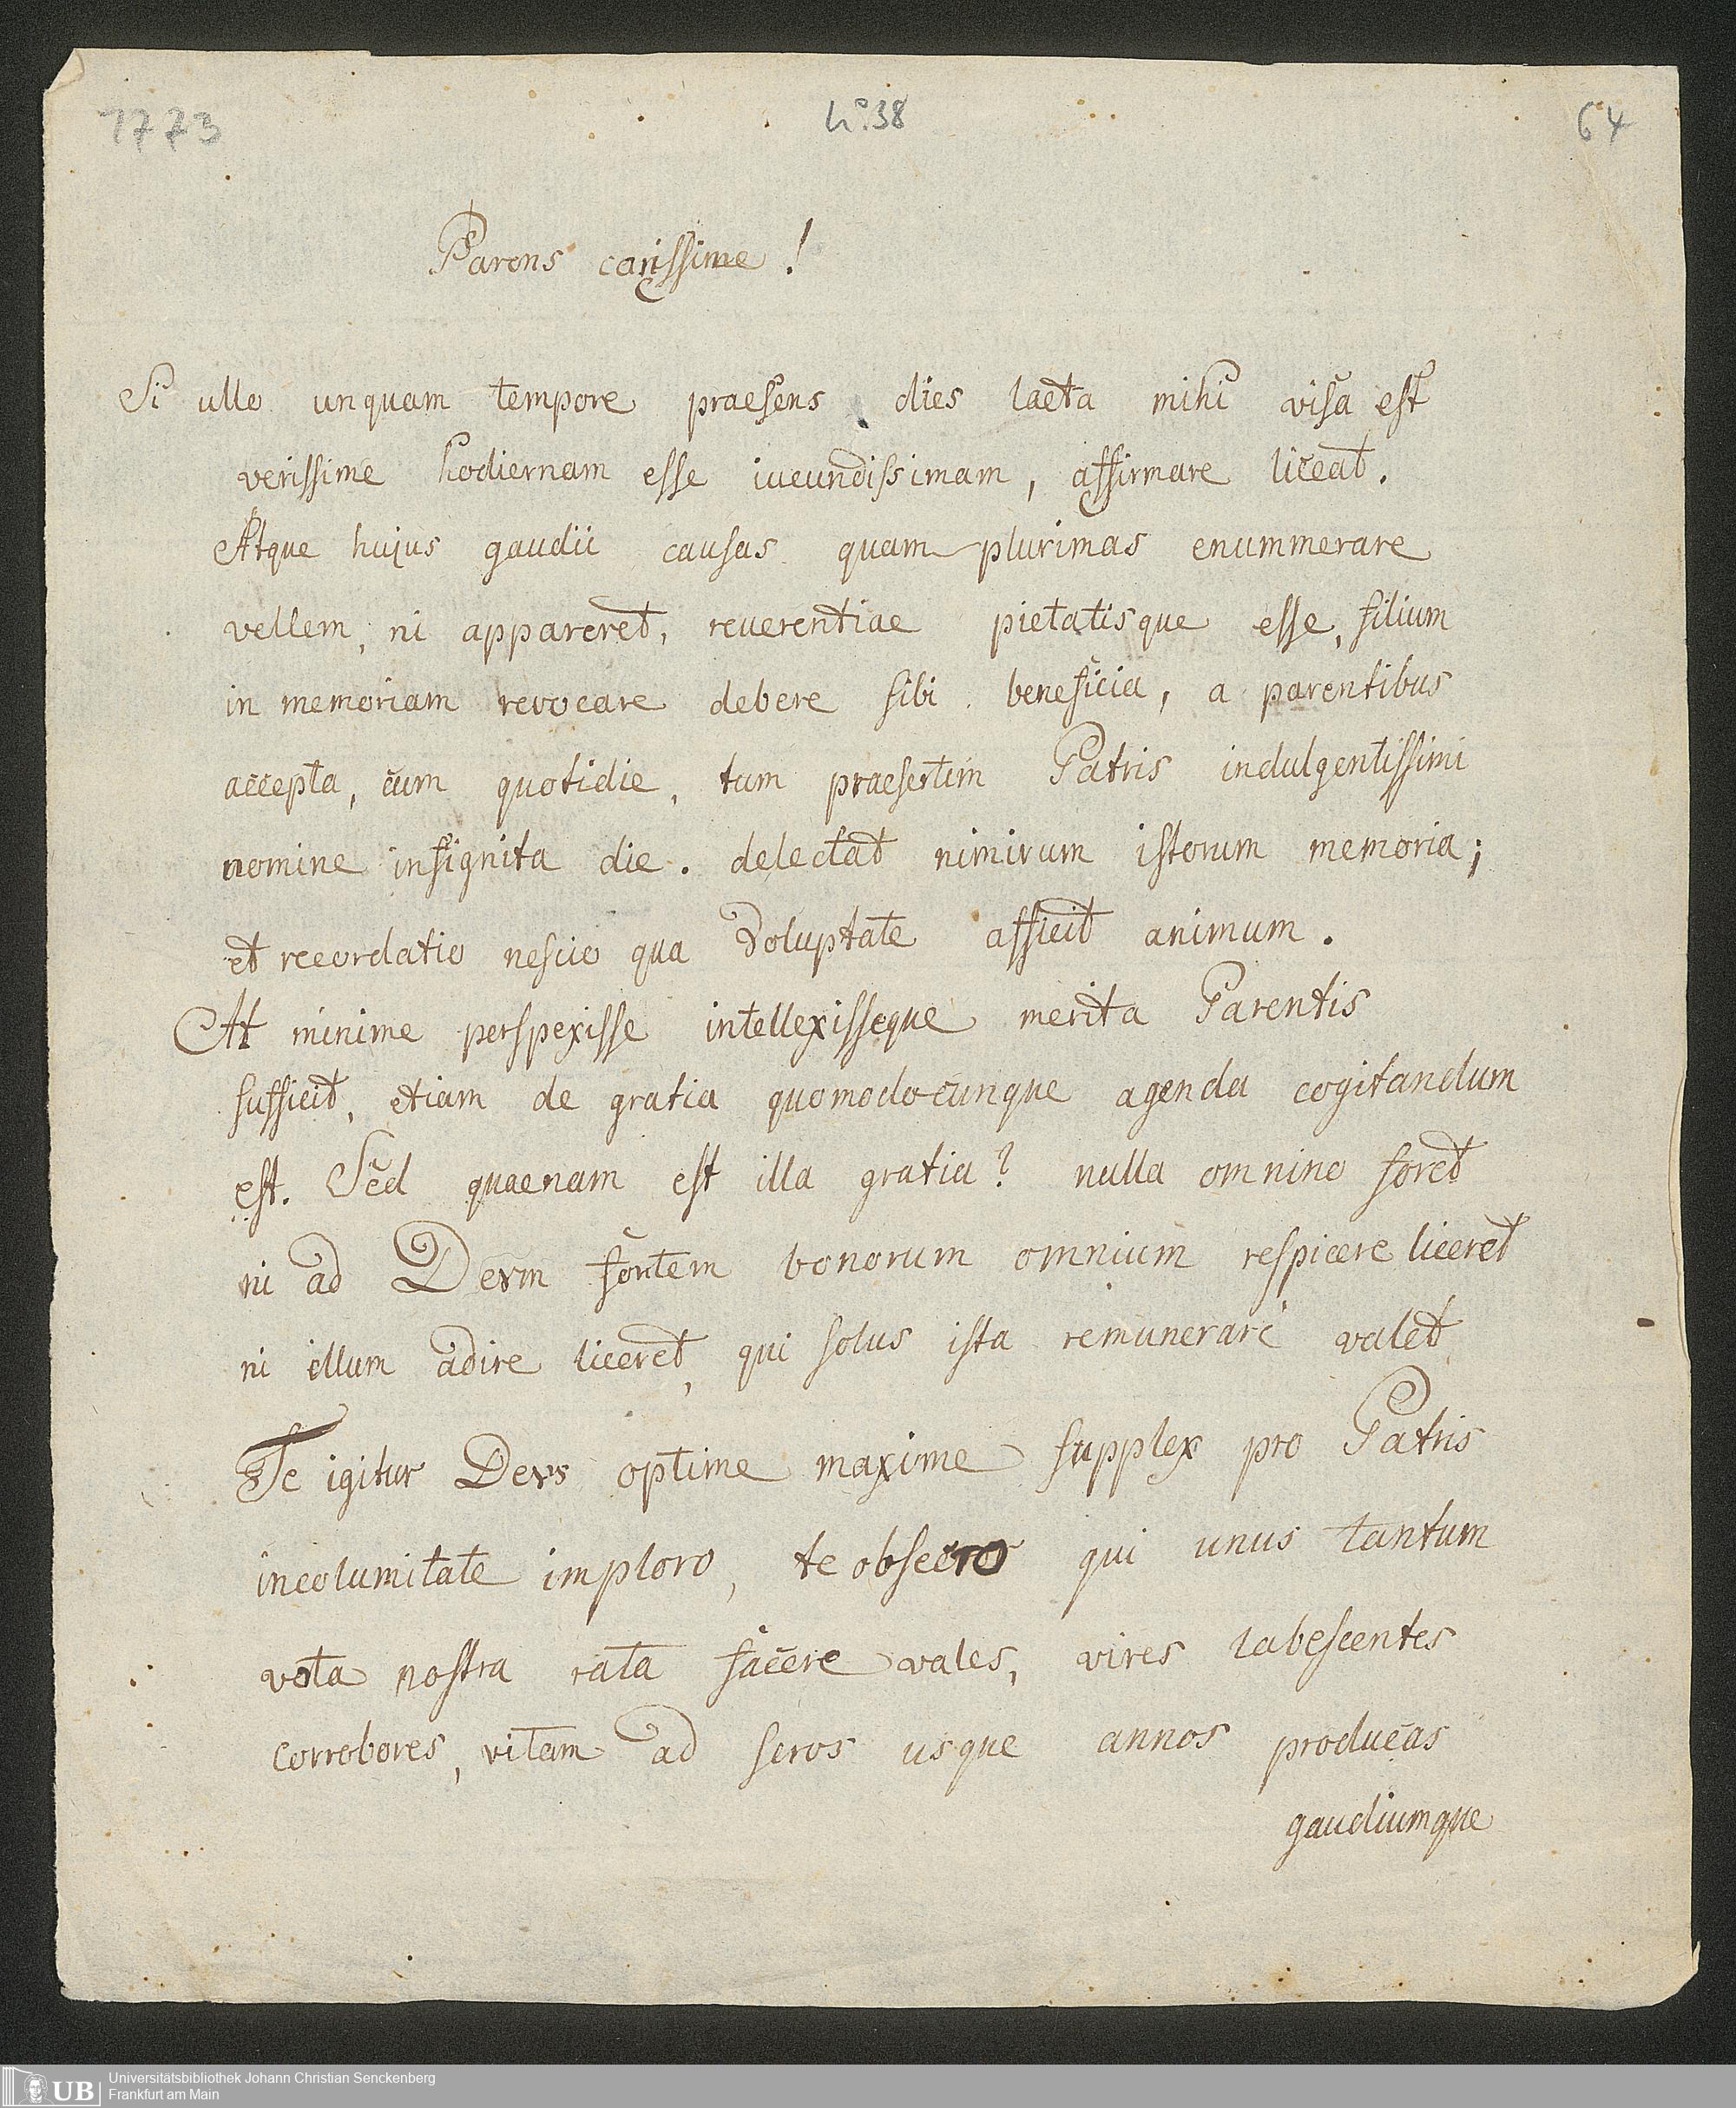 1773
No. 38
64
Parens carissime!
Si ullo unquam tempore praesens dies laeta mihi visa est
verissime hodiernam esse iucundissimam, affirmare liceat.
Atque hujus gaudii causas quam plurimas enummerare
vellem, ni appareret, reuerentiae pietatisque esse, filium
in memoriam revocare debere sibi beneficia, a parentibus
accepta, cum quotidie, tum praesertim Patris indulgentissimi
nomine insignita die. delectat nimirum istorum memoria;
et recordatio nescio qua Voluptate afficit animum.
At minime perspexisse intellexisseque merita Parentis
sufficit, etiam de gratia quomodocunque agenda cogitandum
est. Sed quaenam est illa gratia? nulla omnino foret
ni ad Deum fontem bonorum omnium respicere liceret
ni illum adire liceret, qui solus ista remunerari valet
Te igitur Deus optime maxime supplex pro Patris
incolumitate imploro, te obsecro qui unus tantum
vota nostra rata facere vales, vires labescentes
corrobores, vitam ad seros usque annos producas
gaudiumque
UB
Universitätsbibliothek Johann Christian Senckenberg
Frankfurt am Main